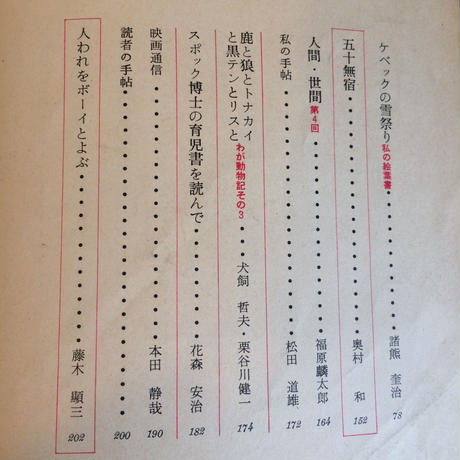 ケベックの雪祭り 私の絵葉書・・・・・・・・諸熊 奎治 78
五十無宿・・・・・・・・・・・・奥村 和 152
人間・世間 第4回・・・・・・・・・・福原麟太郎 164
私の手帖・・・・・・・・・・・・松田 道雄 172
鹿と狼とトナカイ
と黒テンとリスと わが動物記その3・・犬飼 哲夫・栗谷川健一 174
スポック博士の育児書を読んで・・・・・・花森 安治 182
映画通信・・・・・・・・・・・・本田 静哉 190
読者の手帖・・・・・・・・・・・・・・・ 200
人われをボーイとよぶ・・・・・・・・・藤木 顯三 202